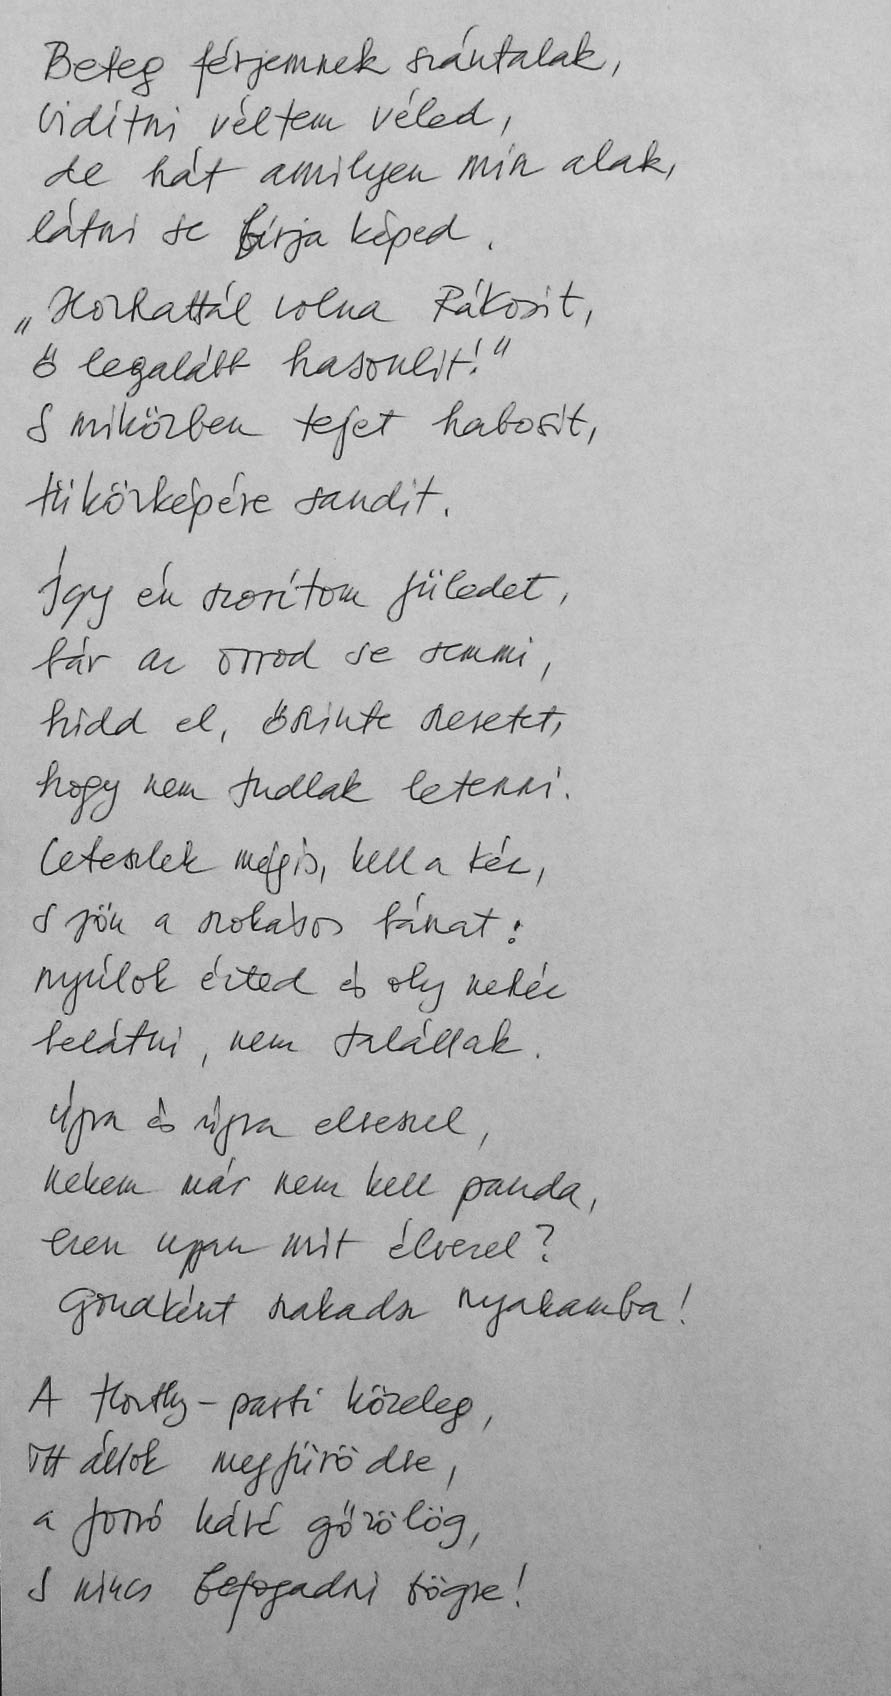 Beteg férjemnek szántalak,
vidítni véltem véled,
de hát amilyen min alak,
látni se bírja képed.
„Hozhattál volna Rákosit,
ő legalább hasonlit!"
S miközben tejet habosit,
tükörképére sandit.
Így én szorítom füledet,
bár az orrod se semmi,
hidd el, őszinte szeretet,
hogy nem tudlak letenni.
Leteszlek mégis, kell a kéz,
s jön a szokásos bánat:
nyúlok érted és oly nehéz
belátni, nem talállak.
Újra és újra elveszel,
nekem már nem kell panda,
ezen ugyan mit élvezel?
Gondként szakadsz nyakamba!
A Horthy-parti közeleg,
itt állok megfürödve,
a forró kávé gőzölög,
s nincs befogadni bögre!